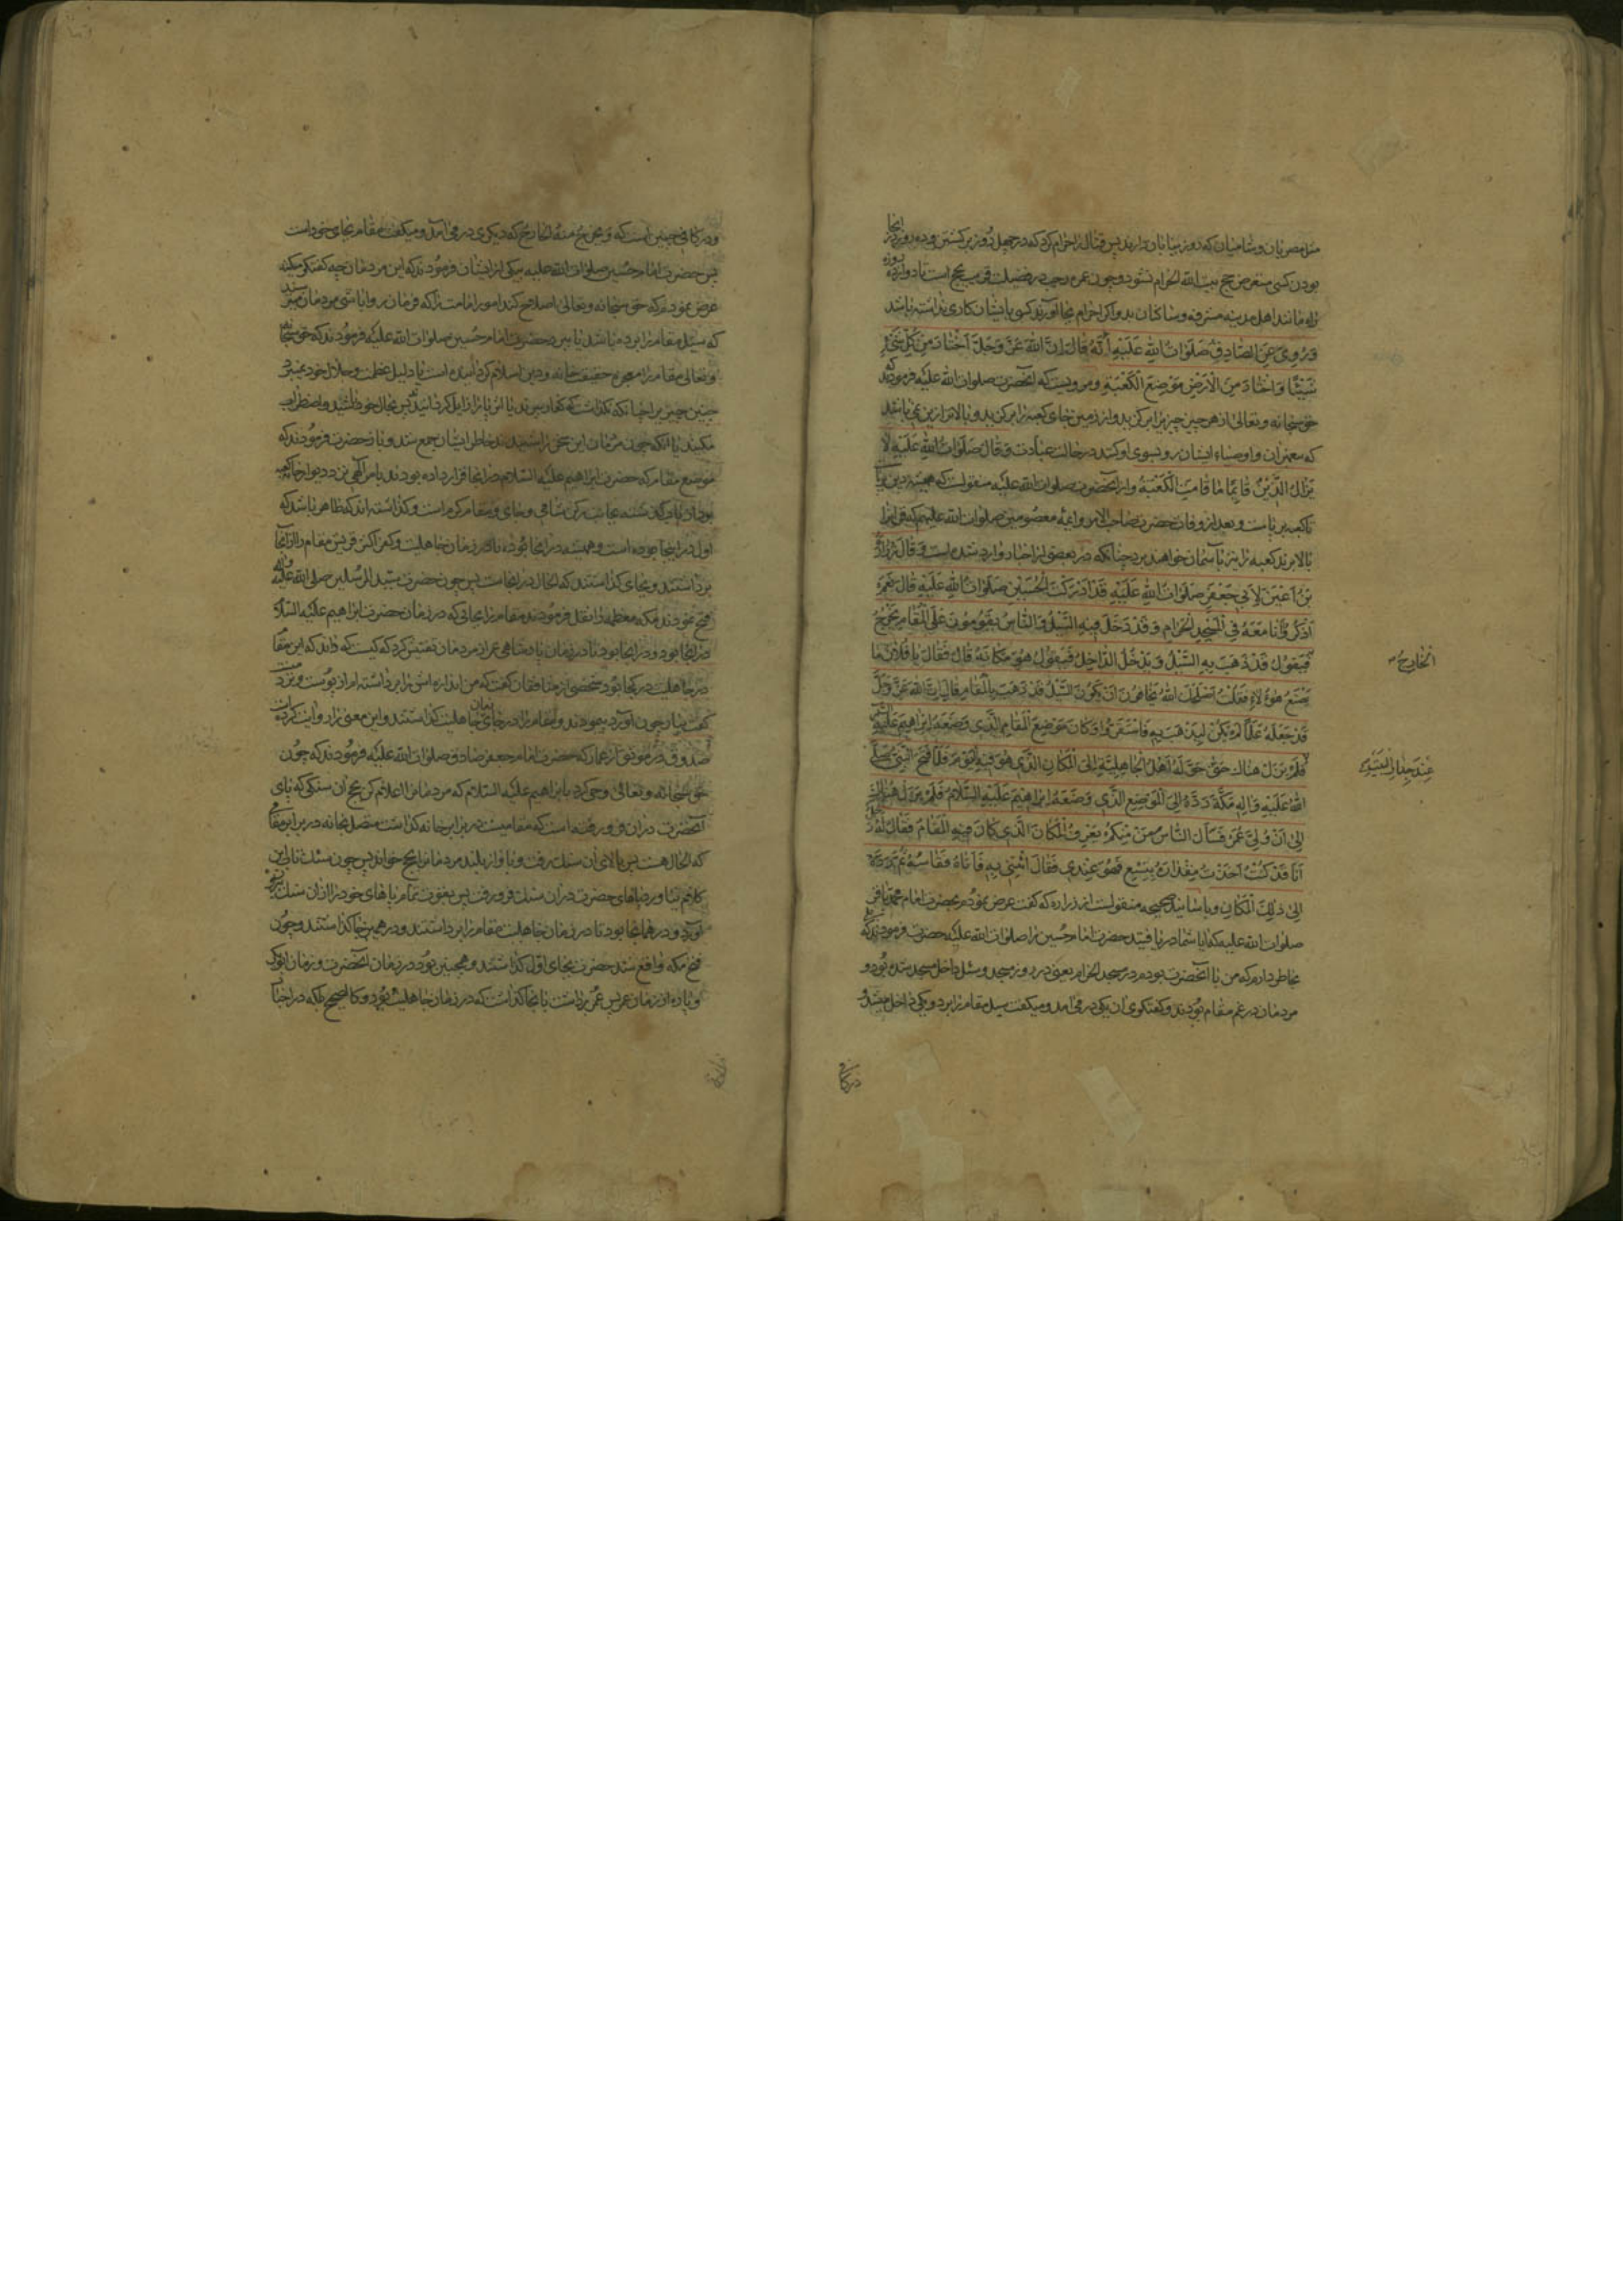 مثل مصریان و شامیان که دور بیابان دارند پس قتال را حرام کرد که در چهل روز برگشتن و ده روز در آنجا
بودن کسی متعرض حج بیت الله الحرام نشود و چون عمره رجب در فضیلت قریب بحج است تا دوازده روزه
راه مانند اهل مدینه مشرفه و ساکنان بدو اگر احرام بجا آورند کسی با ایشان کاری نداشته باشد
وَرُوِيَ عَنِ الصَّادِقِ صَلَوَاتُ اللهِ عَلَيْهِ أَنَّهُ قَالَ إِنَّ اللهَ عَزَّ وَجَلَّ اخْتَارَ مِنْ كُلِّ شَيْءٍ
شَيْئًا وَاخْتَارَ مِنَ الْأَرْضِ مَوْضِعَ الْكَعْبَةِ و مرویست که آنحضرت صلوات الله علیه فرمودند که
حق سبحانه و تعالی از هر چیز چیزی را برگزید و از زمین جای کعبه را برگزید و بالاتر ازین نمیباشد
که پیغمبران و اوصیاء ایشان رو بسوی او کنند در حالت عبادت وَقَالَ صَلَوَاتُ اللهِ عَلَيْهِ لَا
يَزَالُ الدِّينُ قَائِمًا مَا قَامَتِ الْكَعْبَةُ و از آنحضرت صلوات الله علیه منقولست که همیشه دین برپاست
تا کعبه برپاست و بعد از وفات حضرت صاحب الامر و ائمه معصومین صلوات الله علیهم که قرآن را
بالا برند کعبه را نیز بآسمان خواهند برد چنانکه در بعضی از اخبار وارد شده است وَقَالَ زُرَارَةُ
بْنُ أَعْيَنَ لِأَبِي جَعْفَرٍ صَلَوَاتُ اللهِ عَلَيْهِ قَدْ أَدْرَكْتَ الْحُسَيْنَ صَلَوَاتُ اللهِ عَلَيْهِ قَالَ نَعَمْ
أَذْكُرُ وَأَنَا مَعَهُ فِي الْمَسْجِدِ الْحَرَامِ وَقَدْ دَخَلَ فِيهِ السَّيْلُ وَالنَّاسُ يَقُومُونَ عَلَى الْمَقَامِ يَخْرُجُ
الْخَارِجُ
فَيَقُولُ قَدْ ذَهَبَ بِهِ السَّيْلُ وَيَدْخُلُ الدَّاخِلُ فَيَقُولُ هُوَ مَكَانَهُ قَالَ فَقَالَ يَا فُلَانُ مَا
يَصْنَعُ هٰؤُلَاءِ فَقُلْتُ أَصْلَحَكَ اللهُ يَخَافُونَ أَنْ يَكُونَ السَّيْلُ قَدْ ذَهَبَ بِالْمَقَامِ قَالَ إِنَّ اللهَ عَزَّ وَجَلَّ
قَدْ جَعَلَهُ عَلَمًا لَمْ يَكُنْ لِيَذْهَبَ بِهِ فَاسْتَقِرُّوا وَكَانَ مَوْضِعُ الْمَقَامِ الَّذِي وَضَعَهُ إِبْرَاهِيمُ عَلَيْهِ السَّلَام
عِنْدَ جِدَارِ الْبَيْتِ
فَلَمْ يَزَلْ هُنَاكَ حَتَّى حَوَّلَهُ أَهْلُ الْجَاهِلِيَّةِ إِلَى الْمَكَانِ الَّذِي هُوَ فِيهِ الْيَوْمَ فَلَمَّا فَتَحَ النَّبِيُّ صَلَّى
اللهُ عَلَيْهِ وَآلِهِ مَكَّةَ رَدَّهُ إِلَى الْمَوْضِعِ الَّذِي وَضَعَهُ إِبْرَاهِيمُ عَلَيْهِ السَّلَامُ فَلَمْ يَزَلْ هُنَاكَ
إِلَى أَنْ وُلِّيَ عُمَرُ فَسَأَلَ النَّاسَ مَنْ مِنْكُمْ يَعْرِفُ الْمَكَانَ الَّذِي كَانَ فِيهِ الْمَقَامُ فَقَالَ لَهُ رَجُلٌ
أَنَا قَدْ كُنْتُ أَخَذْتُ مِقْدَارَهُ بِنِسْعٍ فَهُوَ عِنْدِي فَقَالَ ائْتِنِي بِهِ فَأَتَاهُ فَقَاسَهُ ثُمَّ رَدَّهُ
إِلَى ذٰلِكَ الْمَكَانِ و باسانید صحیحه منقولست از زراره که گفت عرض نمودم بحضرت امام محمد باقر
صلوات الله علیه که آیا شما دریافتید حضرت امام حسین را صلوات الله علیه حضرت فرمودند که بلی
بخاطر دارم که من با آنحضرت بودم در مسجد الحرام یعنی در روز مجید و سیل داخل مسجد شده بود و
مردمان در غم مقام بودند و گفتگوی آن یکی در می آمد و میگفت سیل مقام را برد و یکی داخل میشد و
در کا
و در کافی چنین است که و یخرج منه الخارج که دیگری در می آمد و میگفت مقام بجای خود است
پس حضرت امام حسین صلوات الله علیه بیکی از ایشان فرمودند که این مردمان چه گفتگو میکنند
عرض نمودم که حق سبحانه و تعالی اصلاح کند امور امامت را که فرمان روا باشی مردمان میترسند
که سیل مقام را برده باشد یا ببرد حضرت امام حسین صلوات الله علیه فرمودند که حق سبحانه
و تعالی مقام را معجزه حقیقت خانه و دین اسلام گردانیده است یا دلیل عظمت و جلال خود نمیبرد
چنین چیزی را چنانکه نگذاشت که کفار ببرند یا اثر پا را زایل گردانند پس بحال خود باشید و اضطراب
مکنید با آنکه چون مردمان این سخن را شنیدند خاطر ایشان جمع شد و باز حضرت فرمودند که
موضع مقام که حضرت ابراهیم علیه السلام در آنجا قرار داده بودند بامر الهی نزد دیوار خانه کعبه
اول در اینجا بوده است و همیشه در آنجا بوده تا در زمان جاهلیت و کفر اکثر قریش مقام را از آنجا
برداشتند و بجای گذاشتند که الحال در آنجاست پس چون حضرت سید المرسلین صلی الله علیه وآله
فتح نمودند مکه معظمه را نقل فرمودند مقام را بجائی که در زمان حضرت ابراهیم علیه السلام
در آنجا بود و در آنجا بود تا در زمان پادشاهی عمر از مردمان تفتیش کرد که کیست که داند که این مقام
در جاهلیت در کجا بود شخصی از منافقان گفت که من اندازه اش را برداشته ام از پوست و نزد منست
گفت بیار چون آورد پیمودند و مقام را در جای زمان جاهلیت گذاشتند و این معنی را روایت کرده است
صدوق در موثق از عمار که حضرت امام جعفر صادق صلوات الله علیه فرمودند که چون
حق سبحانه و تعالی وحی کرد بابراهیم علیه السلام که مردمان را اعلام کن بحج آن سنگی که پای
آنحضرت در آن فرو رفته است که مقامیست در برابر خانه گذاشت متصل بخانه در برابر مقام
که الحال هست پس بالای آن سنگ رفت و بآواز بلند مردمان را بحج خواند پس چون سنگ تاب این
کلام نیاورد پاهای حضرت در آن سنگ فرو رفت پس بقوت تمام پاهای خود را از آن سنگ بیرون
آورد و در همانجا بود تا در زمان جاهلیت مقام را برداشتند و در همین جا گذاشتند و چون
فتح مکه واقع شد حضرت بجای اول گذاشتند و همچنین بود در زمان آنحضرت و زمان ابوبکر
و پاره از زمان عمر پس عمر برداشت بآنجا گذاشت که در زمان جاهلیت بود و کالصحیح بلکه در اخبار